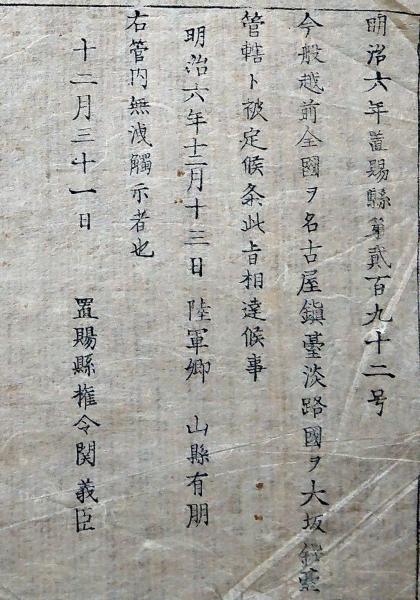 明治六年置賜縣第貳百九十二号
今般越前全國ヲ名古屋鎮臺淡路國ヲ大坂鎮臺
管轄ト被定候条此旨相達候事
明治六年十二月十三日 陸軍卿 山縣有朋
右管内無洩觸示者也
十二月三十一日 置賜縣権令関義臣